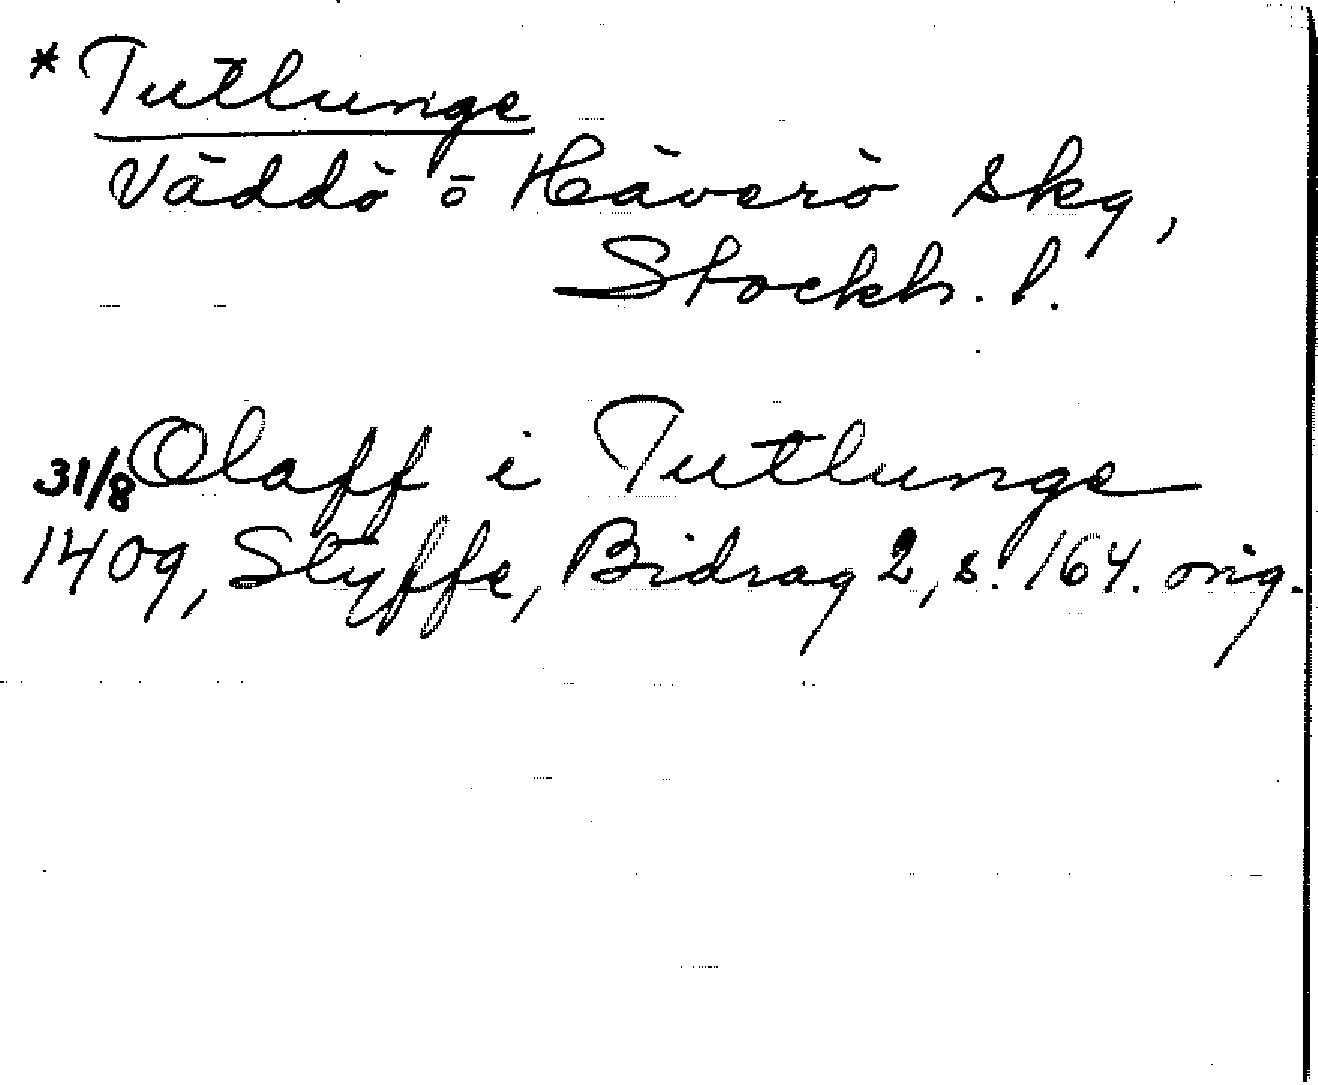 * Tutlunge
Väddö o Häverö skg,
Stockh. l.
31/8 Olaff i Tutlunge
1409, Styffe, Bidrag 2, s. 164. orig.